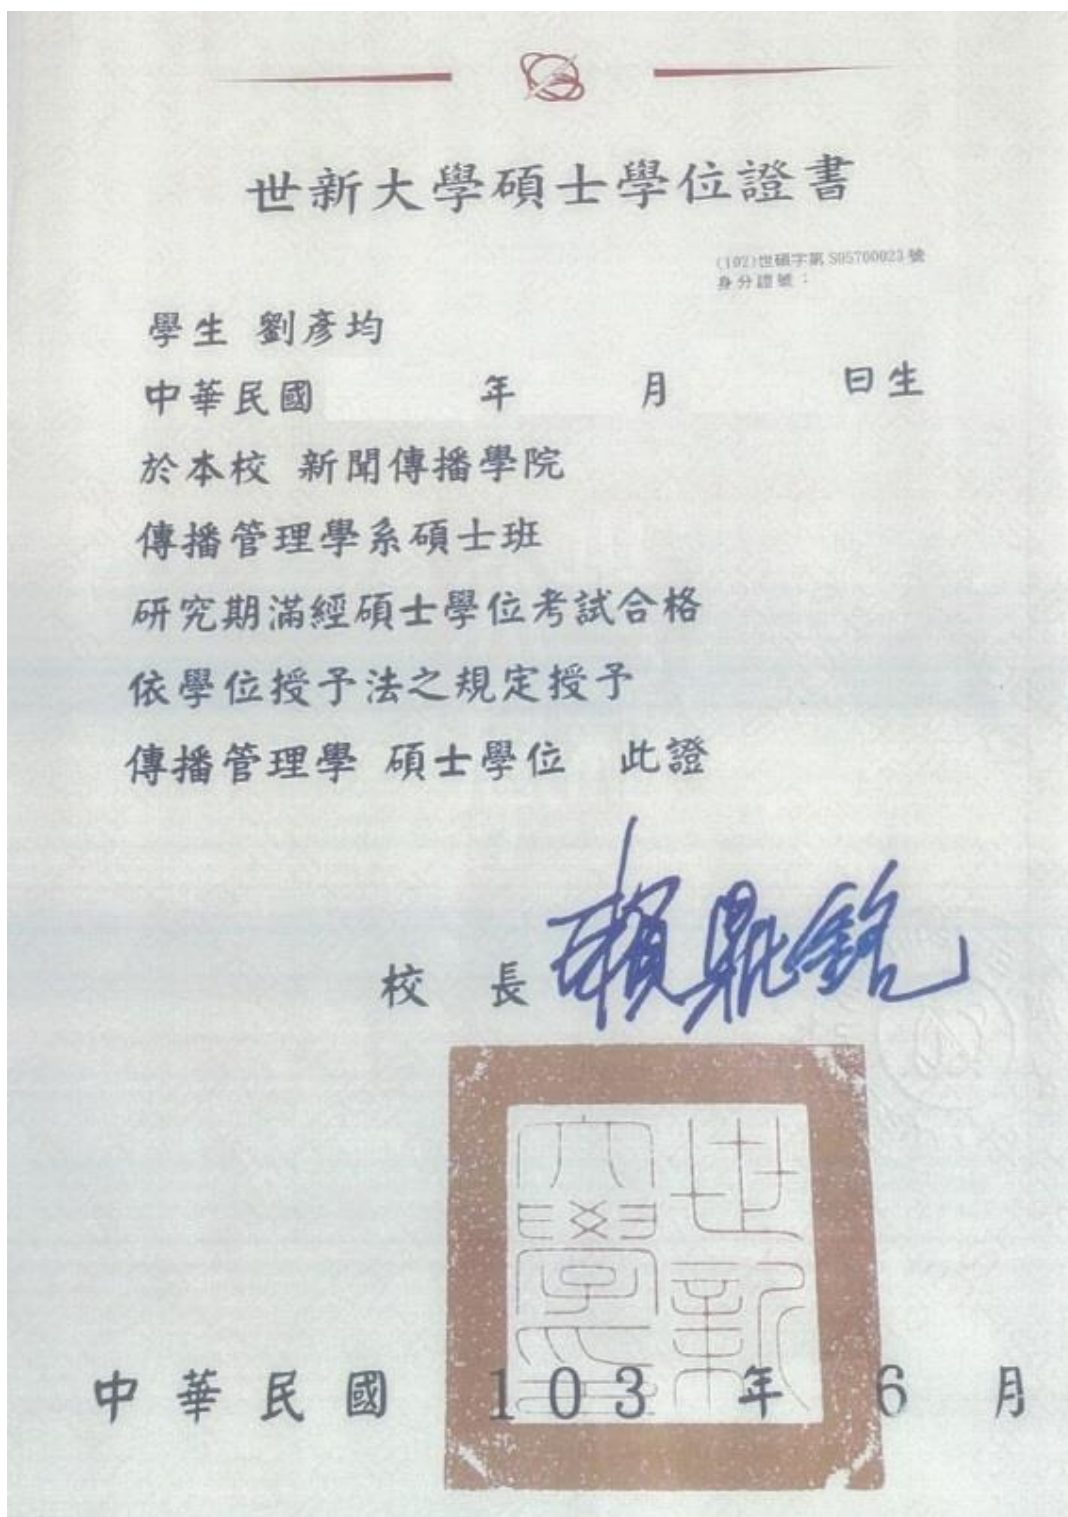 世新大學碩士學位證書
(102)世碩字第 S05700023 號
身分證號：
學生 劉彥均
中華民國 年 月 日生
於本校 新聞傳播學院
傳播管理學系碩士班
研究期滿經碩士學位考試合格
依學位授予法之規定授予
傳播管理學 碩士學位 此證
校 長 賴鼎銘
世新大學
中華民國 103 年 6 月